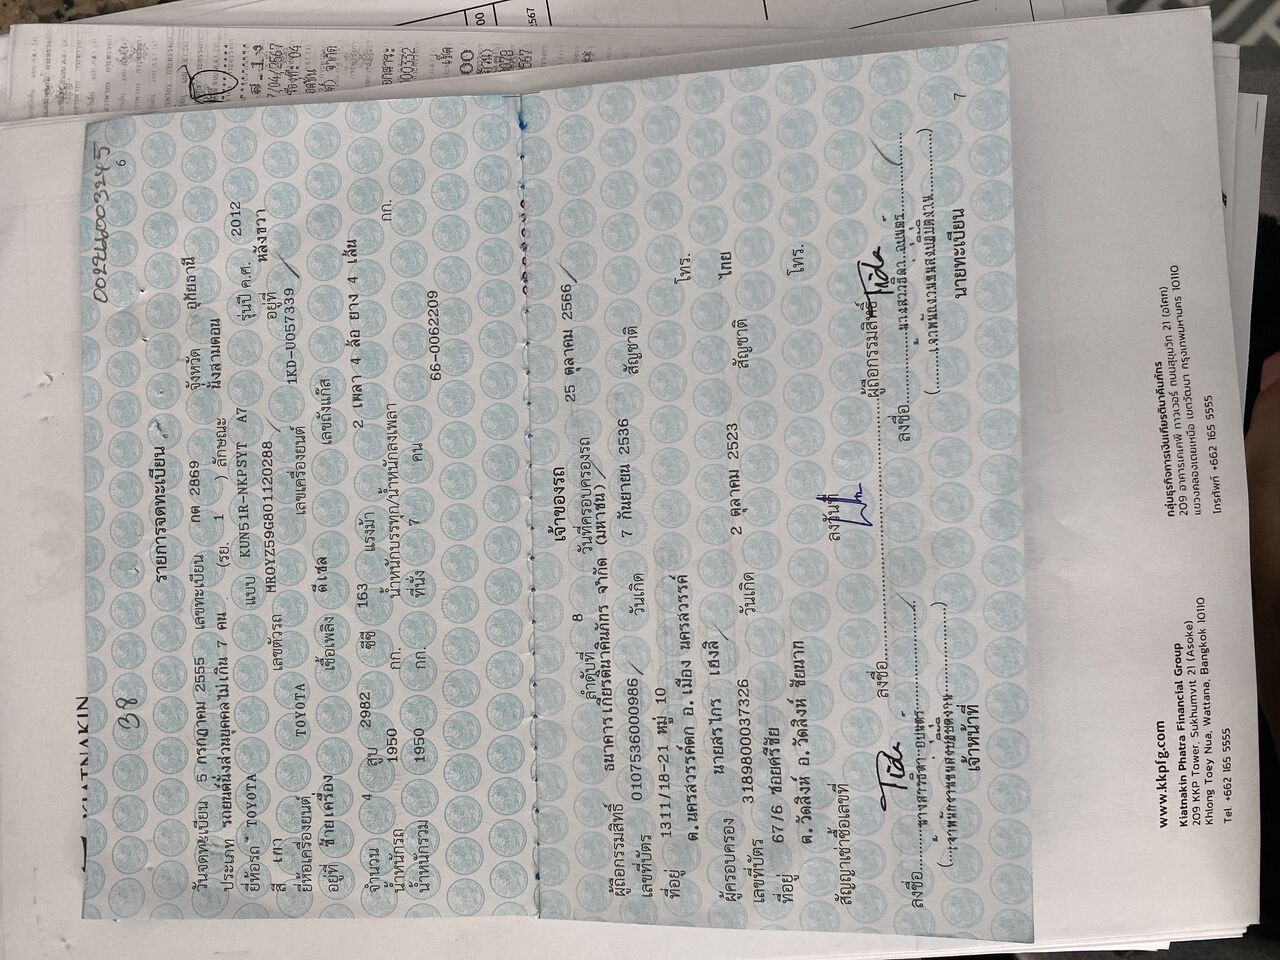 002466003245
6
38
รายการจดทะเบียน
วันจดทะเบียน 5 กรกฎาคม 2555 เลขทะเบียน กต 2869 จังหวัด อุทัยธานี
ประเภท รถยนต์นั่งส่วนบุคคลไม่เกิน 7 คน (รย. 1 ) ลักษณะ นั่งสามตอน
ยี่ห้อรถ TOYOTA แบบ KUN51R-NKPSYT A7 รุ่นปี ค.ศ. 2012
สี เทา เลขตัวรถ MR0YZ59G801120288 อยู่ที่ หลังขวา
ยี่ห้อเครื่องยนต์ TOYOTA เลขเครื่องยนต์ 1KD-U057339
อยู่ที่ ซ้ายเครื่อง เชื้อเพลิง ดีเซล เลขถังแก๊ส
จำนวน 4 สูบ 2982 ซีซี 163 แรงม้า 2 เพลา 4 ล้อ ยาง 4 เส้น
น้ำหนักรถ 1950 กก. น้ำหนักบรรทุก/น้ำหนักลงเพลา กก.
น้ำหนักรวม 1950 กก. ที่นั่ง 7 คน
66-0062209
เจ้าของรถ
ลำดับที่ 8 วันที่ครอบครองรถ 25 ตุลาคม 2566
ผู้ถือกรรมสิทธิ์ ธนาคารเกียรตินาคินภัทร จำกัด (มหาชน)
เลขที่บัตร 0107536000986 วันเกิด 7 กันยายน 2536 สัญชาติ
ที่อยู่ 1311/18-21 หมู่ 10
ต.นครสวรรค์ตก อ.เมือง นครสวรรค์ โทร.
ผู้ครอบครอง นายสรไกร เฮงลิ
เลขที่บัตร 3189800037326 วันเกิด 2 ตุลาคม 2523 สัญชาติ ไทย
ที่อยู่ 67/6 ซอยศรีชัย
ต.วัดสิงห์ อ.วัดสิงห์ ชัยนาท โทร.
สัญญาเช่าซื้อเลขที่ ลงวันที่
ลงชื่อ ผู้ถือกรรมสิทธิ์
ลงชื่อ ลงชื่อ
เจ้าหน้าที่ นายทะเบียน
7
www.kkpfg.com
Kiatnakin Phatra Financial Group
209 KKP Tower, Sukhumvit 21 (Asoke)
Khlong Toey Nua, Wattana, Bangkok 10110
Tel. +662 165 5555
กลุ่มธุรกิจการเงินเกียรตินาคินภัทร
209 อาคารเคเคพี ทาวเวอร์ ถนนสุขุมวิท 21 (อโศก)
แขวงคลองเตยเหนือ เขตวัฒนา กรุงเทพมหานคร 10110
โทรศัพท์ +662 165 5555